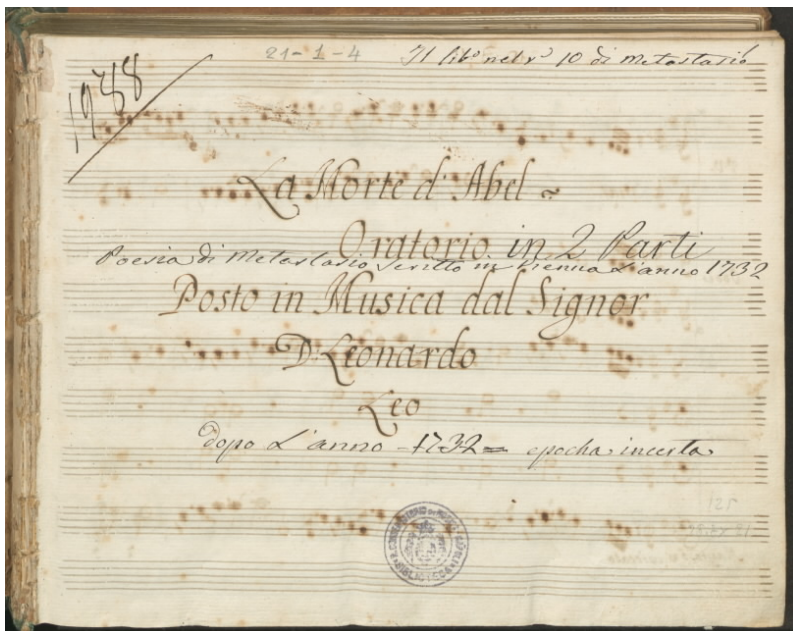 21-1-4 Il lib° nel v° 10 di Metastasio
1988
La Morte d'Abel
Oratorio in 2 Parti
Poesia di Metastasio scritto in Vienna l'anno 1732
Posto in Musica dal Signor
D. Leonardo
Leo
dopo l'anno 1732 = epocha incerta
BIBLIOTECA